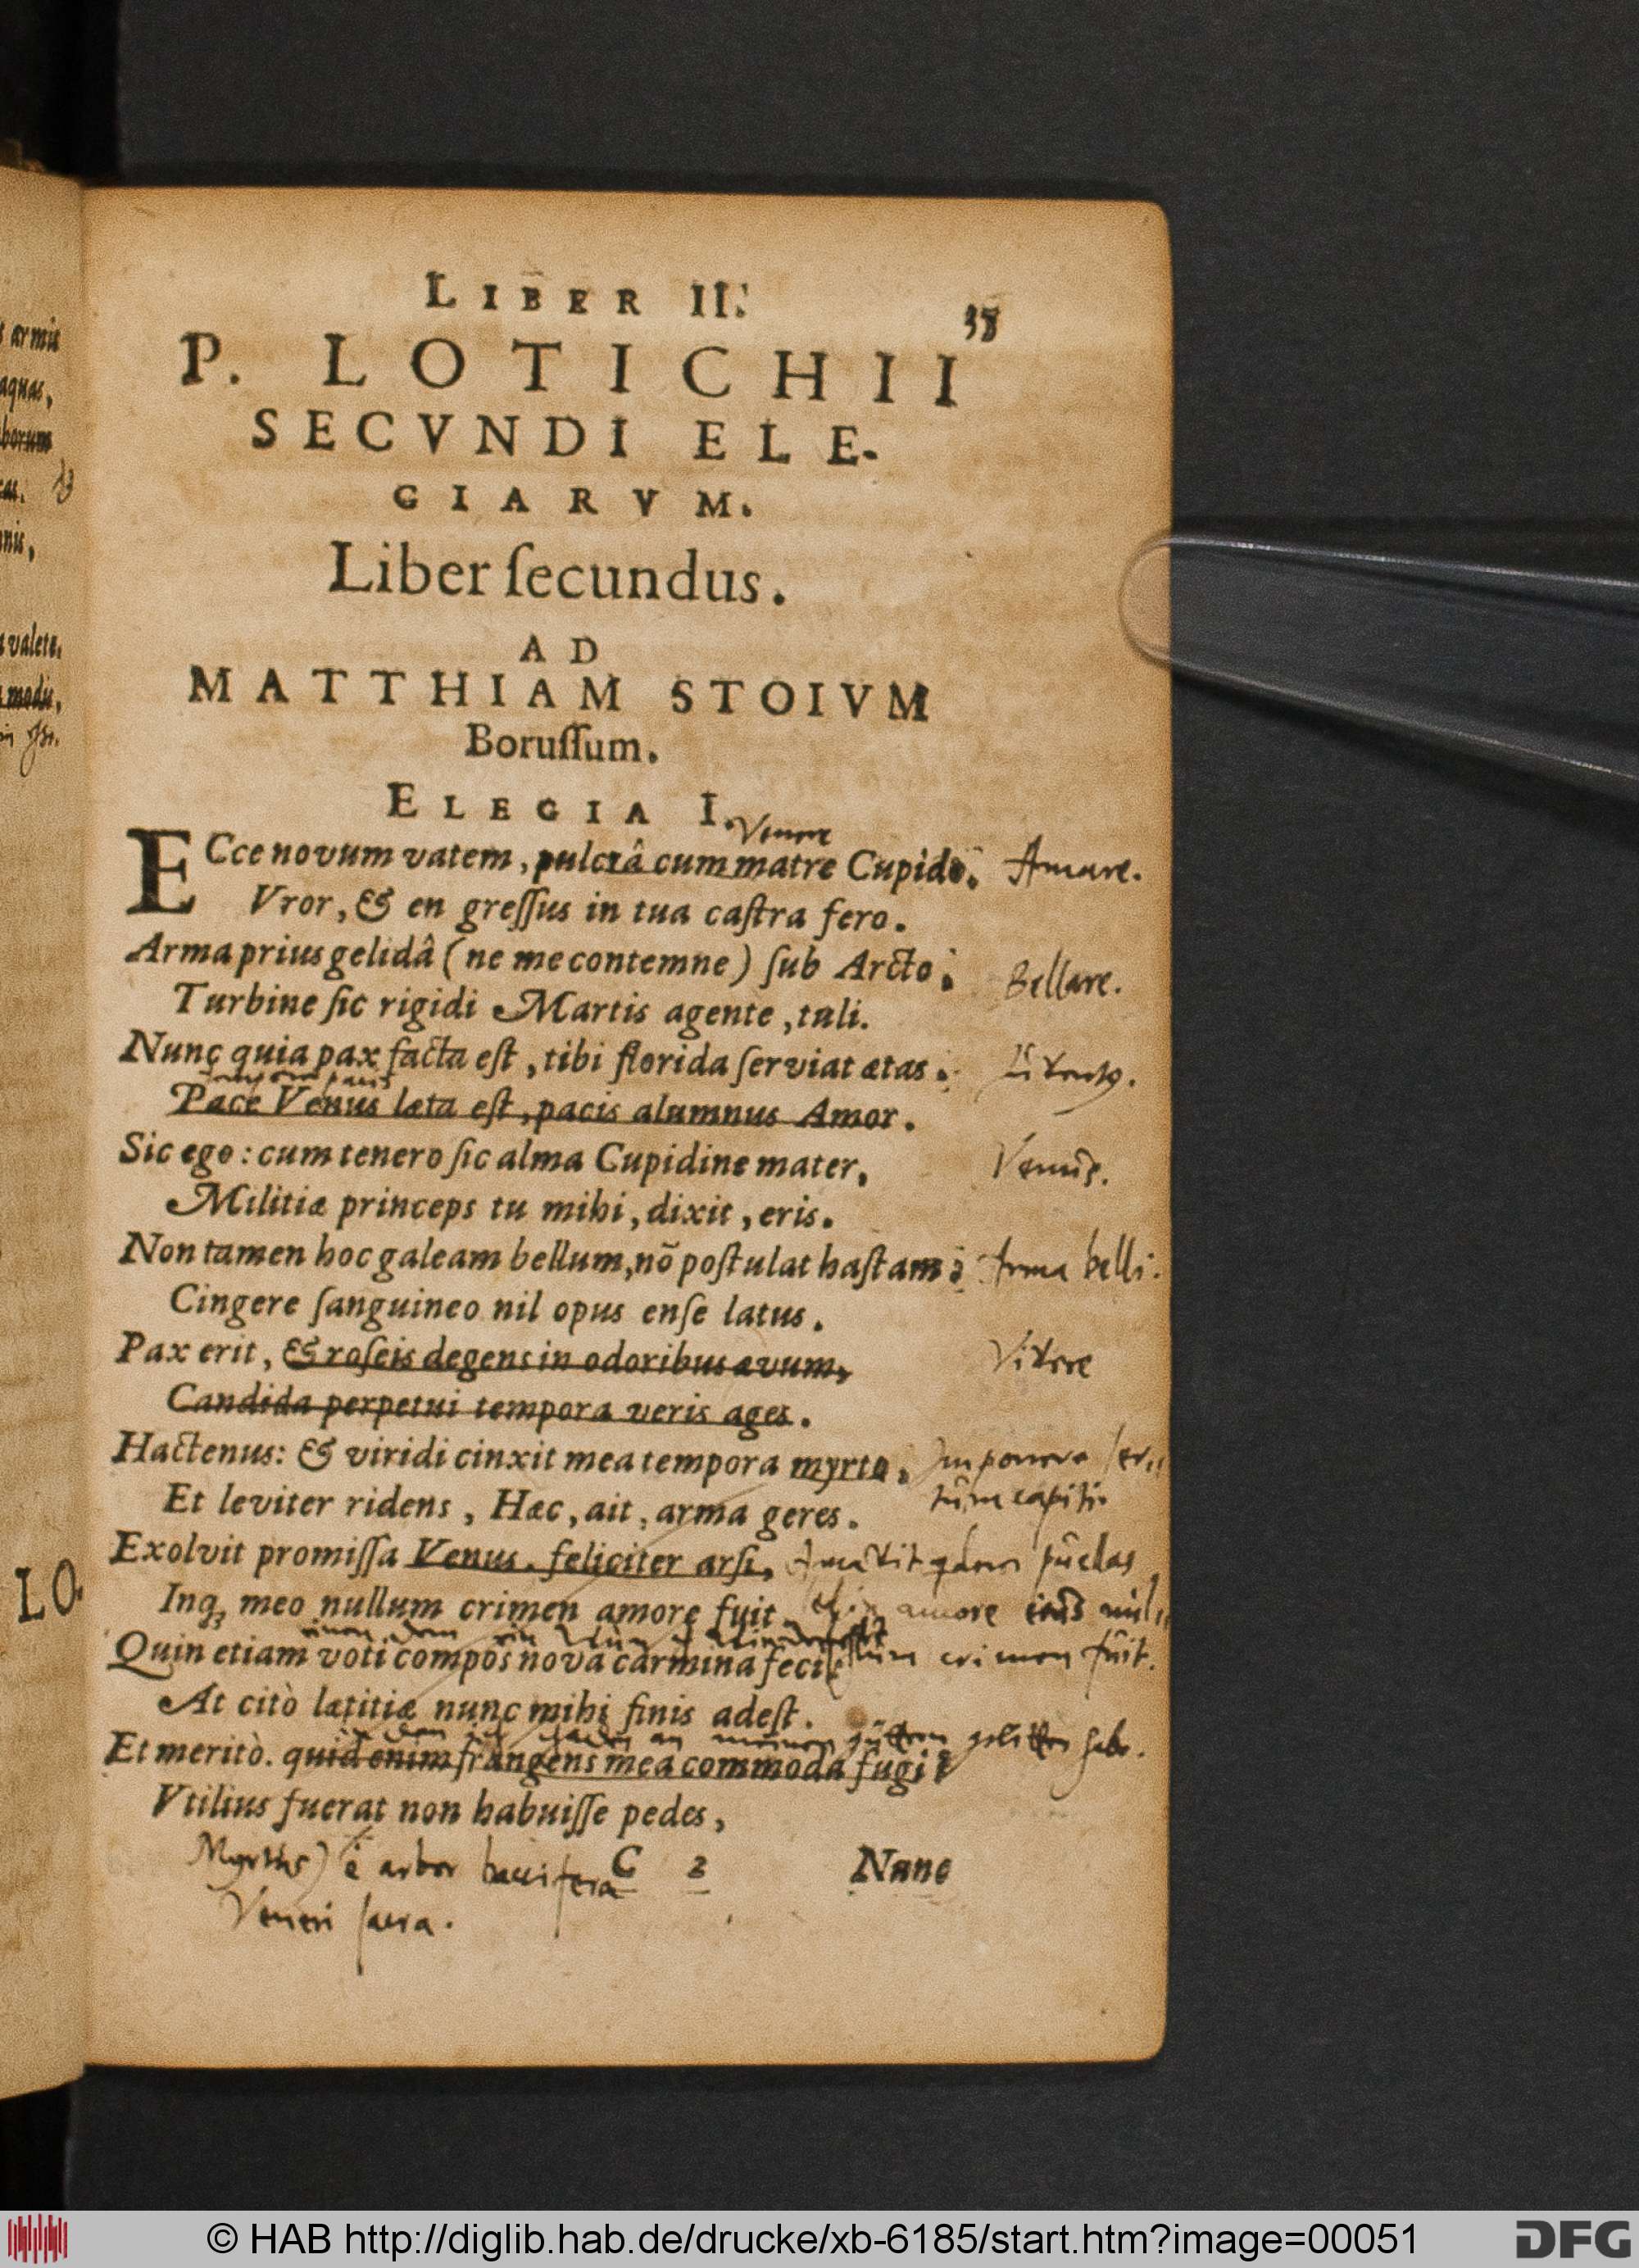 s armis
aquas,
borum
cas.
mnis,
t valete,
modis,
LO.
LIBER II.
35
P. LOTICHII
SECVNDI ELE-
GIARVM.
Liber ſecundus.
AD
MATTHIAM STOIVM
Boruſſum.
ELEGIA I.
Venere
ECce novum vatem, pulcrâ cum matre Cupido. Amare.
Vror, & en greſſus in tua caſtra fero.
Arma prius gelidâ (ne me contemne) ſub Arcto: Bellare.
Turbine ſic rigidi Martis agente, tuli.
Nunc quia pax facta eſt, tibi florida ſerviat ætas:
Pace Venus læta eſt, pacis alumnus Amor.
Sic ego: cum tenero ſic alma Cupidine mater, Venus.
Militiæ princeps tu mihi, dixit, eris.
Non tamen hoc galeam bellum, nõ poſtulat haſtam: Arma belli.
Cingere ſanguineo nil opus enſe latus.
Pax erit, & roſeis degens in odoribus ævum, Vivere
Candida perpetui tempora veris ages.
Hactenus: & viridi cinxit mea tempora myrto, Imponere ſer-
tum capiti.
Et leviter ridens, Hæc, ait, arma geres.
Exolvit promiſſa Venus. feliciter arſi, Amavit puellas
Inq; meo nullum crimen amore fuit. amore nul-
lum crimen fuit.
Quin etiam voti compos nova carmina feci:
At citò lætitiæ nunc mihi finis adeſt.
Et meritò. quid enim frangens mea commoda fugi?
Vtilius fuerat non habuiſſe pedes,
C 2 Nunc
Myrtus) è arbor baccifera
Veneri ſacra.
© HAB http://diglib.hab.de/drucke/xb-6185/start.htm?image=00051
DFG